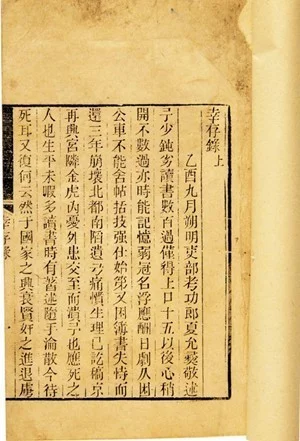 幸存錄上
乙酉九月朔明吏部考功郎夏允彝敬述
予少鈍劣讀書數百過僅得上口十五以後心稍
開不數過亦時能記憶弱冠名浮應酬日劇久困
公車不能舍帖括技强仕始第又困簿書失恃而
還三年崩壞北都陷遺弓痛憤生理已訖鎬京
再興宮鄰金虎內憂外患交至而潰予也應死之
人也生平未暇多讀書時有著述隨手淪散今待
死耳又復何云然于國家之興衰賢奸之進退虜
幸存錄